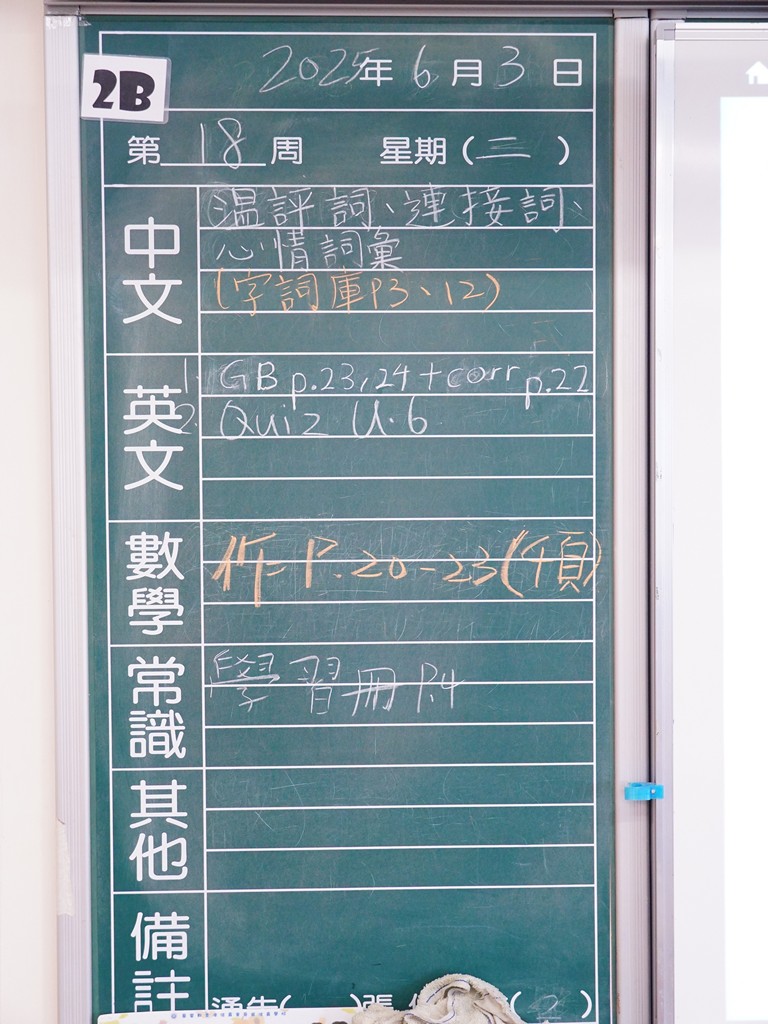 2B
2025年 6 月 3 日
第 18 周 星期 (三)
中文
溫評詞、連接詞、
心情詞彙
(字詞庫P3、12)
英文
1. GB p.23,24 + corr p.22
2. Quiz U.6
數學
作 P.20-23
常識
學習冊 P.4
其他
備註
通告( )張 (2)